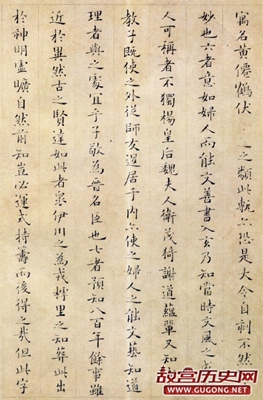 寓名黄僊鶴伏之類此執六恐是大令自刺不然
妙也六者意如婦人而能文善書入玄乃知當時文風之
人可稱者不獨楊皇后魏夫人衛茂猗謝道蘊輩又知
教子既使之外從師友退居于内亦使之婦人之能文藝知道
理者與之處宜乎子敬為晉名臣也七者預知八百年餘事雖
近於異然古之賢達如此者衆伊川之為戎樗里之知葬此出
於神明虛曠自然前知豈必運式持籌而後得之哉但此字
故宫历史网
www.gugong.net